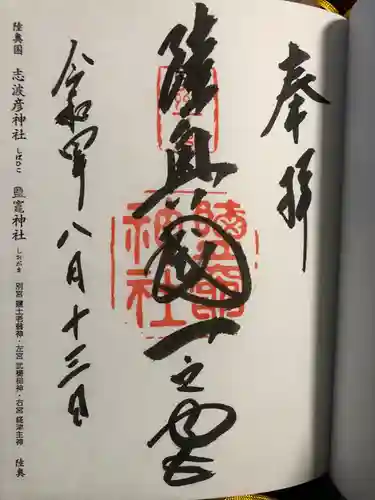 奉拝
陸奥國一之宮
鹽竈
神社
令和四年八月十三日
陸奥国 志波彦神社 しはひこ 鹽竈神社 しおがま 別宮 鹽土老翁神・左宮 武甕槌神・右宮 経津主神 陸奥